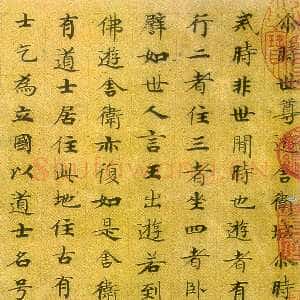 尒時世尊遊舍衛城尒時
時非世間時也遊者有
行二者住三者坐四者卧
譬如世人言王出遊若到
佛遊舍衛亦復如是舍衛
有道士居住此地住古有
士乞為立國以道士名号